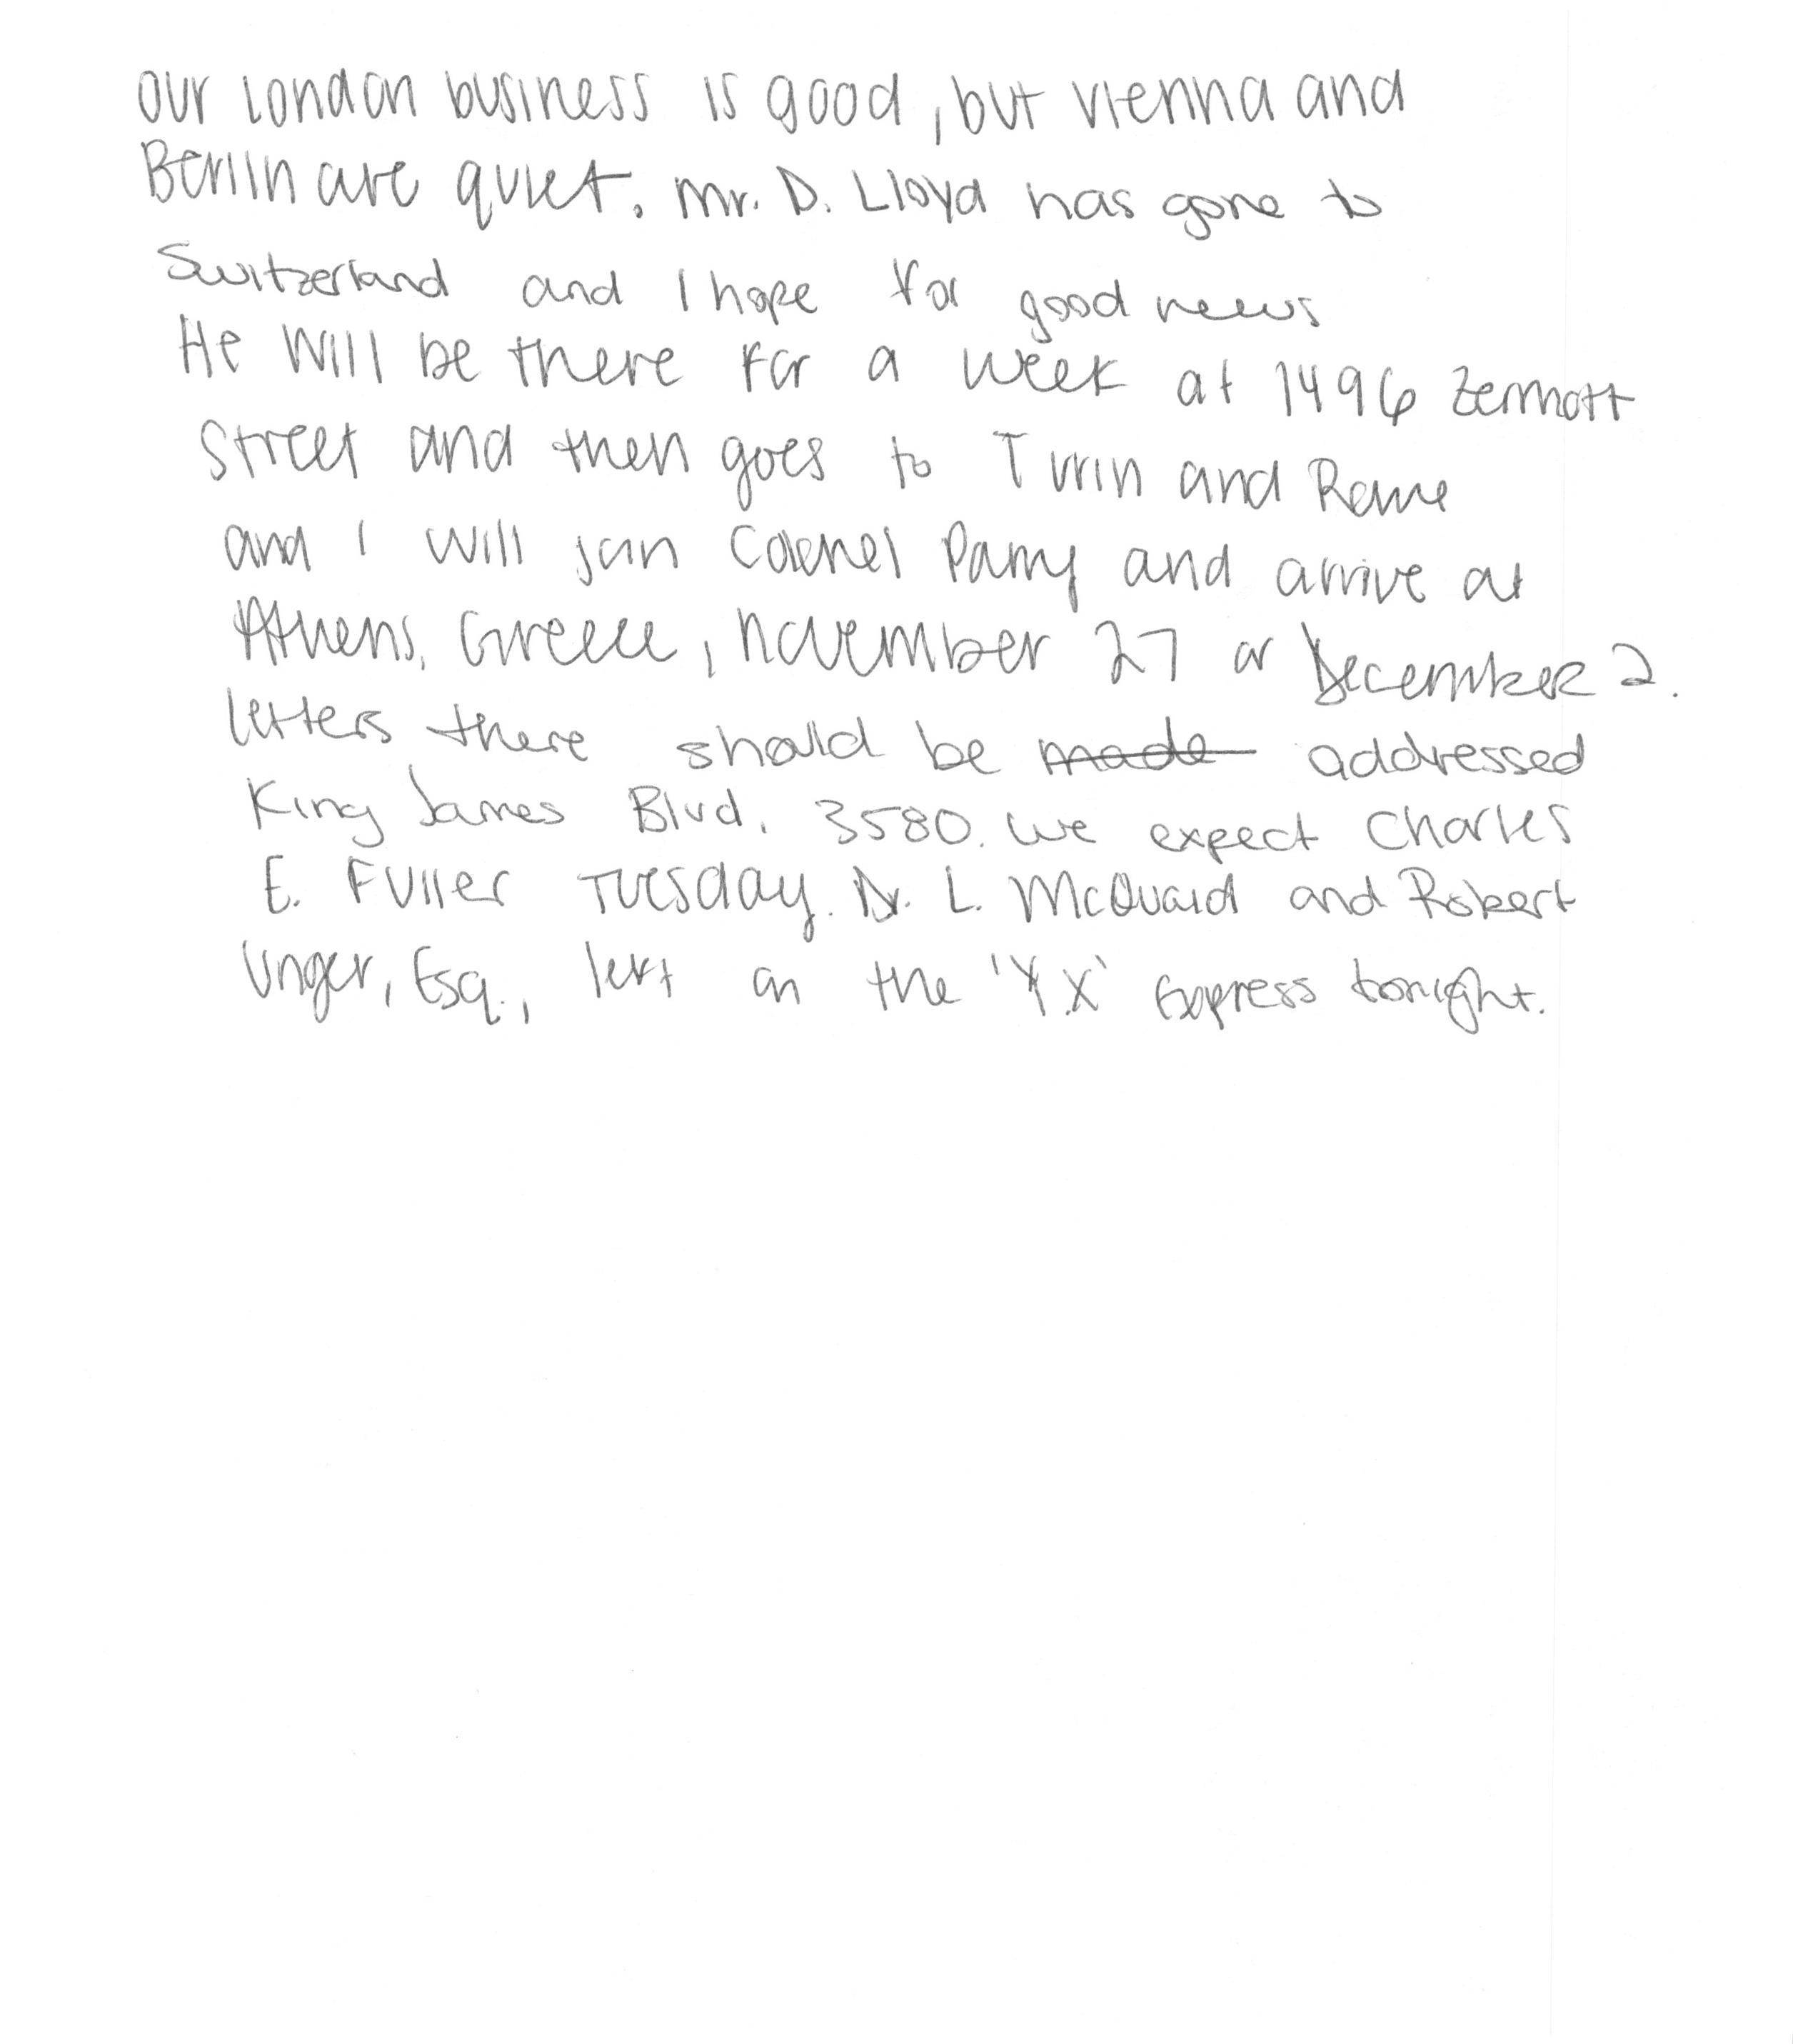 our London business is good, but vienna and
Berlin are quiet. Mr. D. Lloyd has gone to
Switzerland and I hope for good news
He will be there for a week at 1496 Zermott
Street and then goes to Turin and Rome
and I will join Colonel Parry and arrive at
Athens, Greece, november 27 or December 2.
letters there should be made addressed
King James Blvd. 3580. we expect Charles
E. Fuller Tuesday. Dr. L. McQuaid and Robert
Unger, Esq., left on the 'Y.X' Express tonight.